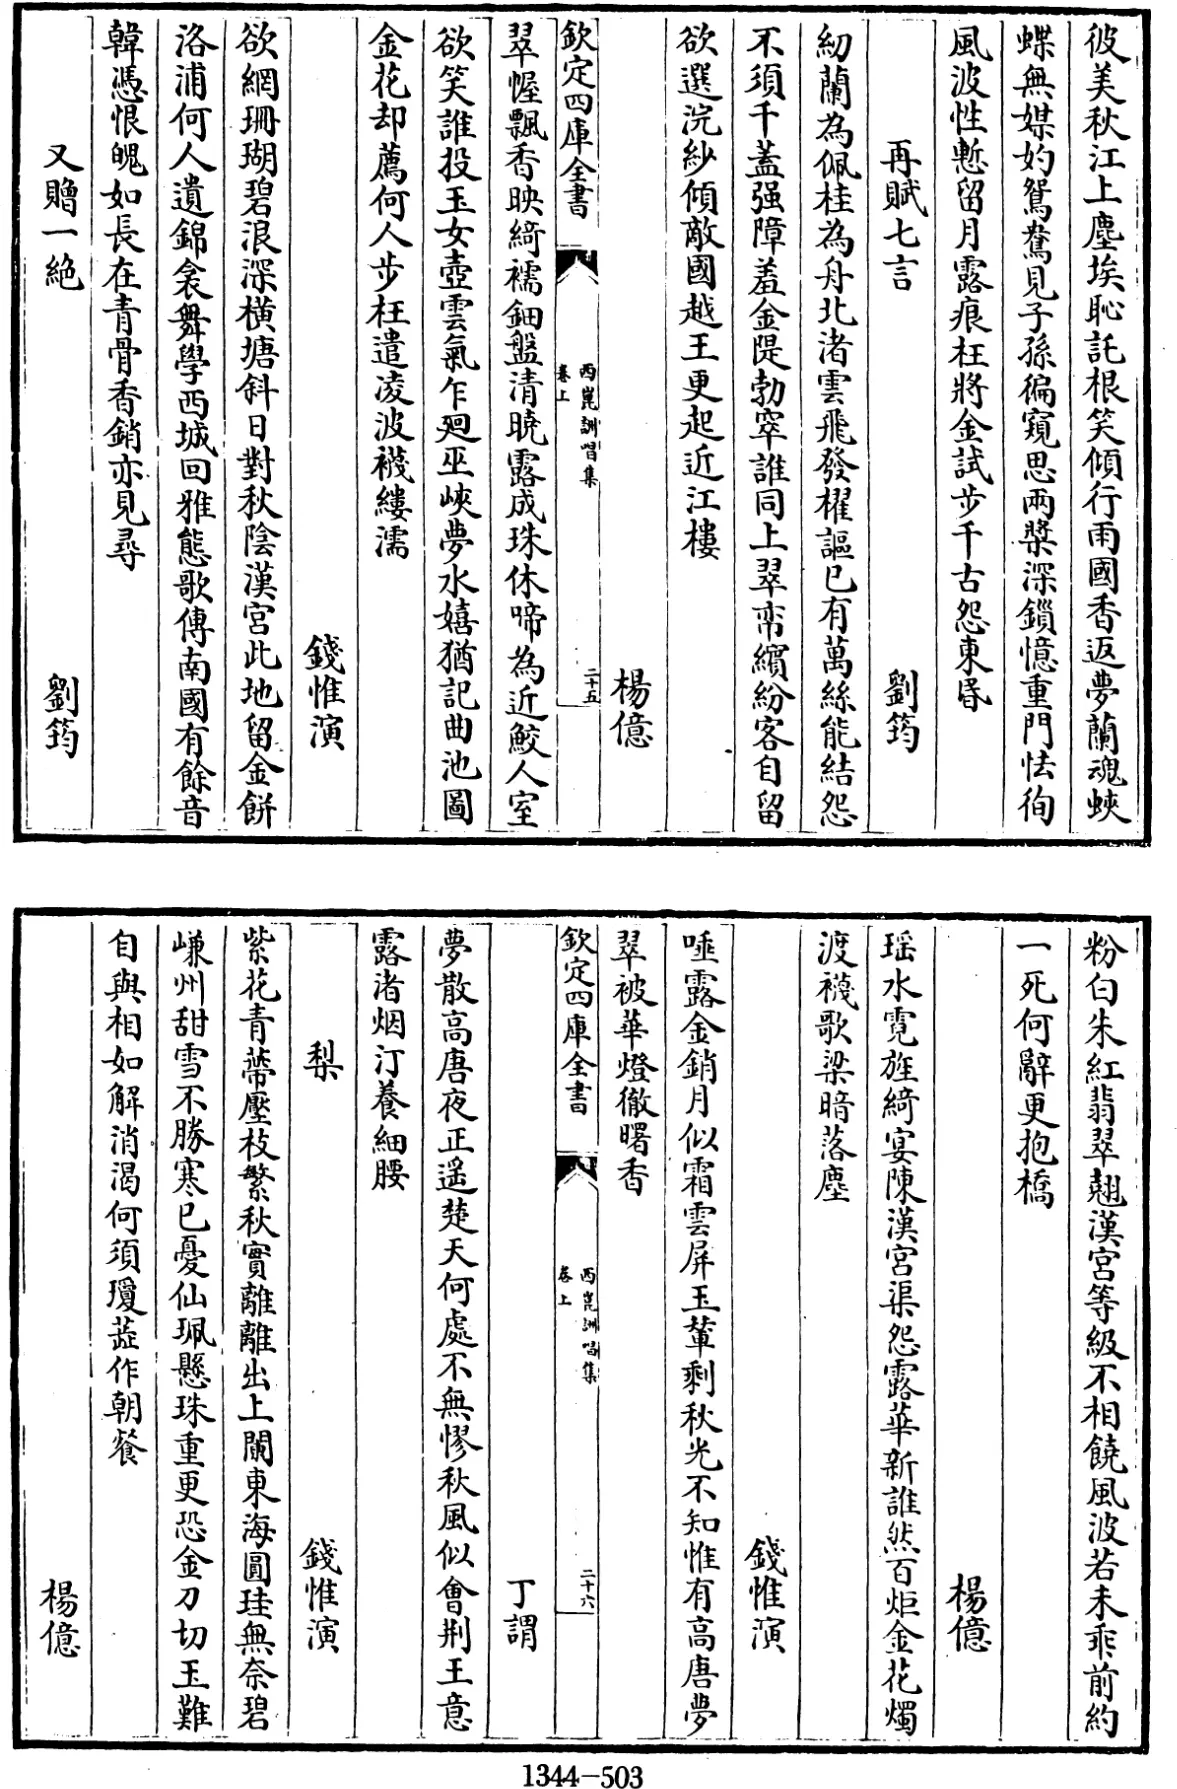 彼美秋江上塵埃恥託根笑傾行雨國香返夢蘭魂蛺
蝶無媒妁鴛鴦見子孫徧窺思兩槳深鎖憶重門怯徇
風波性慙留月露痕枉將金試步千古怨東昬
再賦七言 劉筠
紉蘭為佩桂為舟北渚雲飛發櫂謳已有萬絲能結怨
不須千盖强障羞金隄勃窣誰同上翠帟繽紛客自留
欲選浣紗傾敵國越王更起近江樓
楊億
欽定四庫全書
西崑詶唱集
卷上
二十五
翠幄飄香映綺襦鈿盤清曉露成珠休啼為近鮫人室
欲笑誰投玉女壺雲氣乍廻巫峽夢水嬉猶記曲池圖
金花却薦何人步枉遣凌波襪縷濡
錢惟演
欲網珊瑚碧浪深橫塘斜日對秋陰漢宮此地留金餅
洛浦何人遺錦衾舞學西城回雅態歌傳南國有餘音
韓憑恨魄如長在青骨香銷亦見尋
又贈一絶 劉筠
粉白朱紅翡翠翹漢宮等級不相饒風波若未乖前約
一死何辭更抱橋
楊億
瑶水霓旌綺宴陳漢宮渠怨露華新誰然百炬金花燭
渡襪歌梁暗落塵
錢惟演
唾露金銷月似霜雲屏玉輦剩秋光不知惟有高唐夢
翠被華燈徹曙香
欽定四庫全書
西崑詶唱集
卷上
二十六
丁謂
夢散高唐夜正遥楚天何處不無憀秋風似會荆王意
露渚烟汀養細腰
梨 錢惟演
紫花青蔕壓枝繁秋實離離出上闌東海圓珪無奈碧
嵰州甜雪不勝寒已憂仙珮懸珠重更恐金刀切玉難
自與相如解消渴何須瓊蕋作朝餐
楊億
1344-503